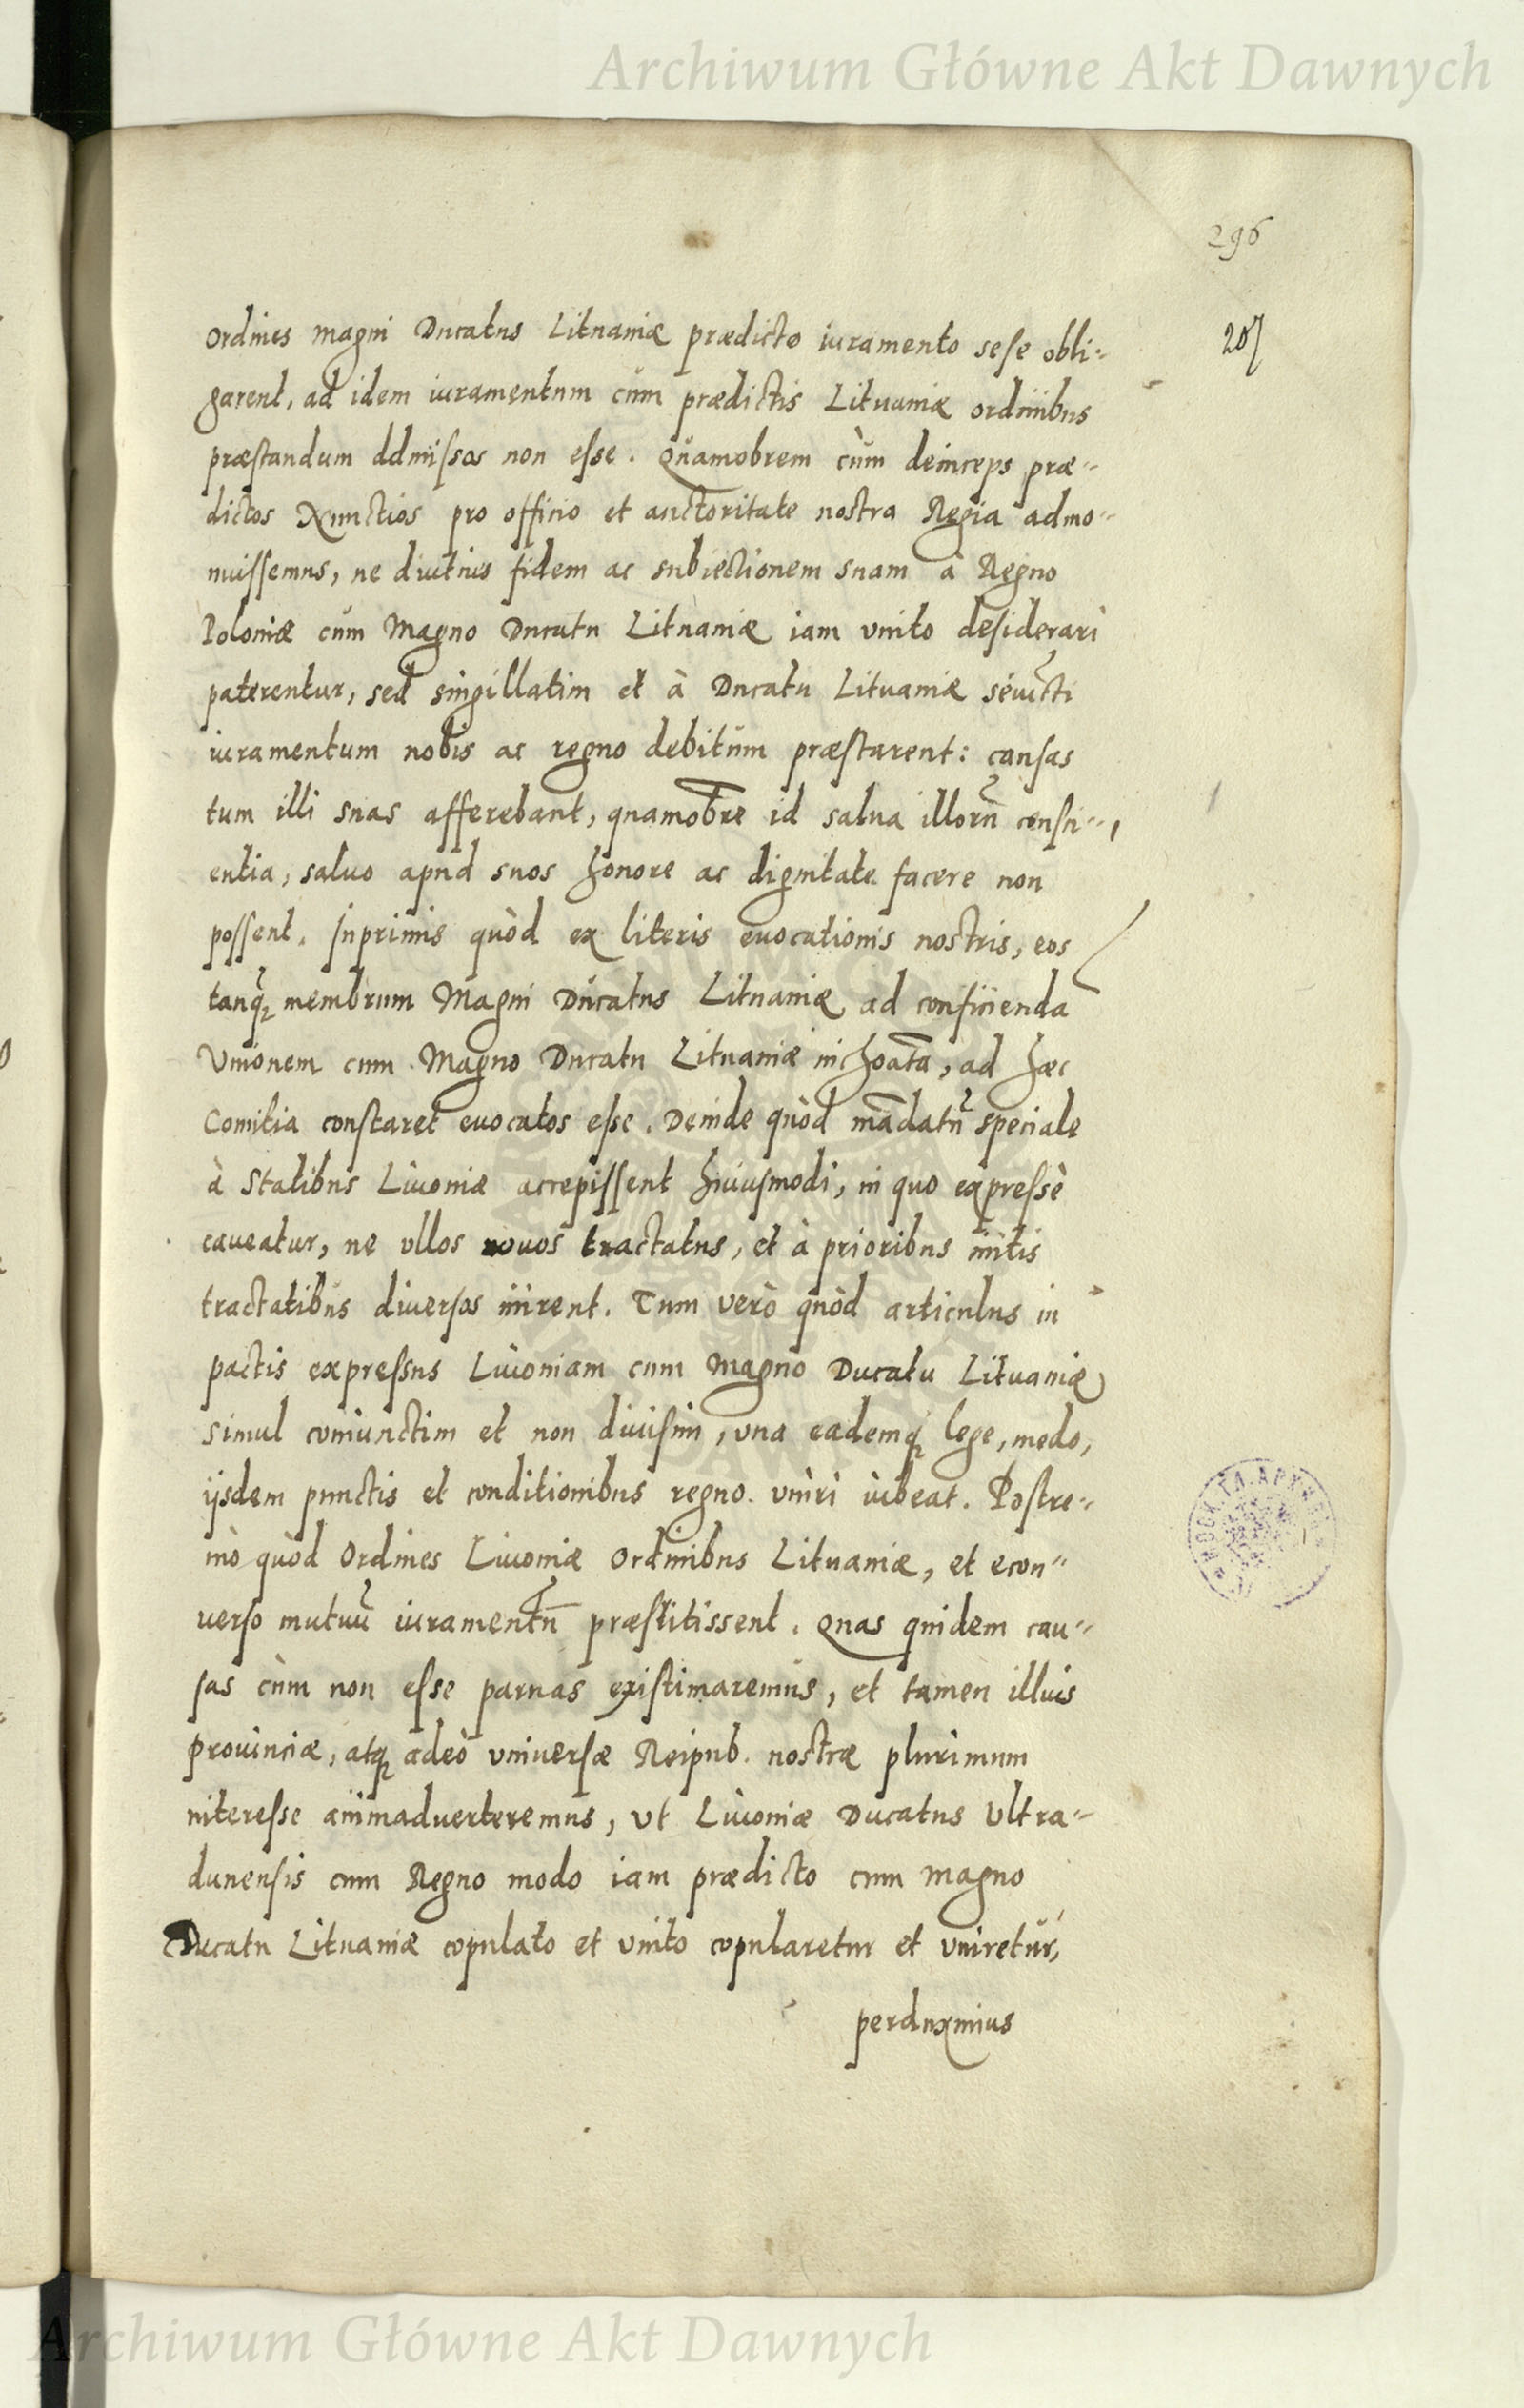 Archiwum Główne Akt Dawnych
296
207
Ordines magni Ducatus Lituaniæ prædicto iuramento sese obli-
garent, ad idem iuramentum cùm prædictis Lituaniæ ordinibus
præstandum admissos non esse. Quamobrem cùm deinceps præ-
dictos Nunctios pro officio et auctoritate nostra Regia admo-
nuissemus, ne diutius fidem ac subiectionem suam à Regno
Poloniæ cum Magno Ducatu Lituaniæ iam unito desiderari
paterentur, sed singillatim et à Ducatu Lituaniæ seiuncti
iuramentum nobis ac regno debitum præstarent: causas
tum illi suas afferebant, quamobrē id salua illorū consci-
entia, saluo apud suos honore ac dignitate facere non
possent. Inprimis quòd ex literis euocationis nostris, eos
tanq̃ membrum Magni Ducatus Lituaniæ ad conficienda
Vnionem cum Magno Ducatu Lituaniæ inchoatā, ad hæc
Comitia constaret euocatos esse. Deinde quòd mādatū speciale
à Statibus Liuoniæ accepissent huiusmodi, in quo expressè
caueatur, ne vllos nouos tractatus, et à prioribus initis
tractatibus diuersos inirent. Tum verò quòd articulus in
pactis expressus Liuoniam cum Magno Ducatu Lituaniæ
simul coniunctim et non diuisim, vna eademq; lege, modo,
ijsdem punctis et conditionibus regno vniri iubeat. Postre-
mò quòd Ordines Liuoniæ Ordinibus Lituaniæ, et econ-
uerso mutuū iuramentū præstitissent. Quas quidem cau-
sas cùm non esse paruas existimaremus, et tamen illius
prouinciæ, atq; adeò vniuersæ Reipub. nostræ plurimum
interesse animaduerteremus, vt Liuoniæ Ducatus Vltra-
dunensis cum Regno modo iam prædicto cum magno
Ducatu Lituaniæ copulato et vnito copularetur et vniretur,
perduximus
Archiwum Główne Akt Dawnych